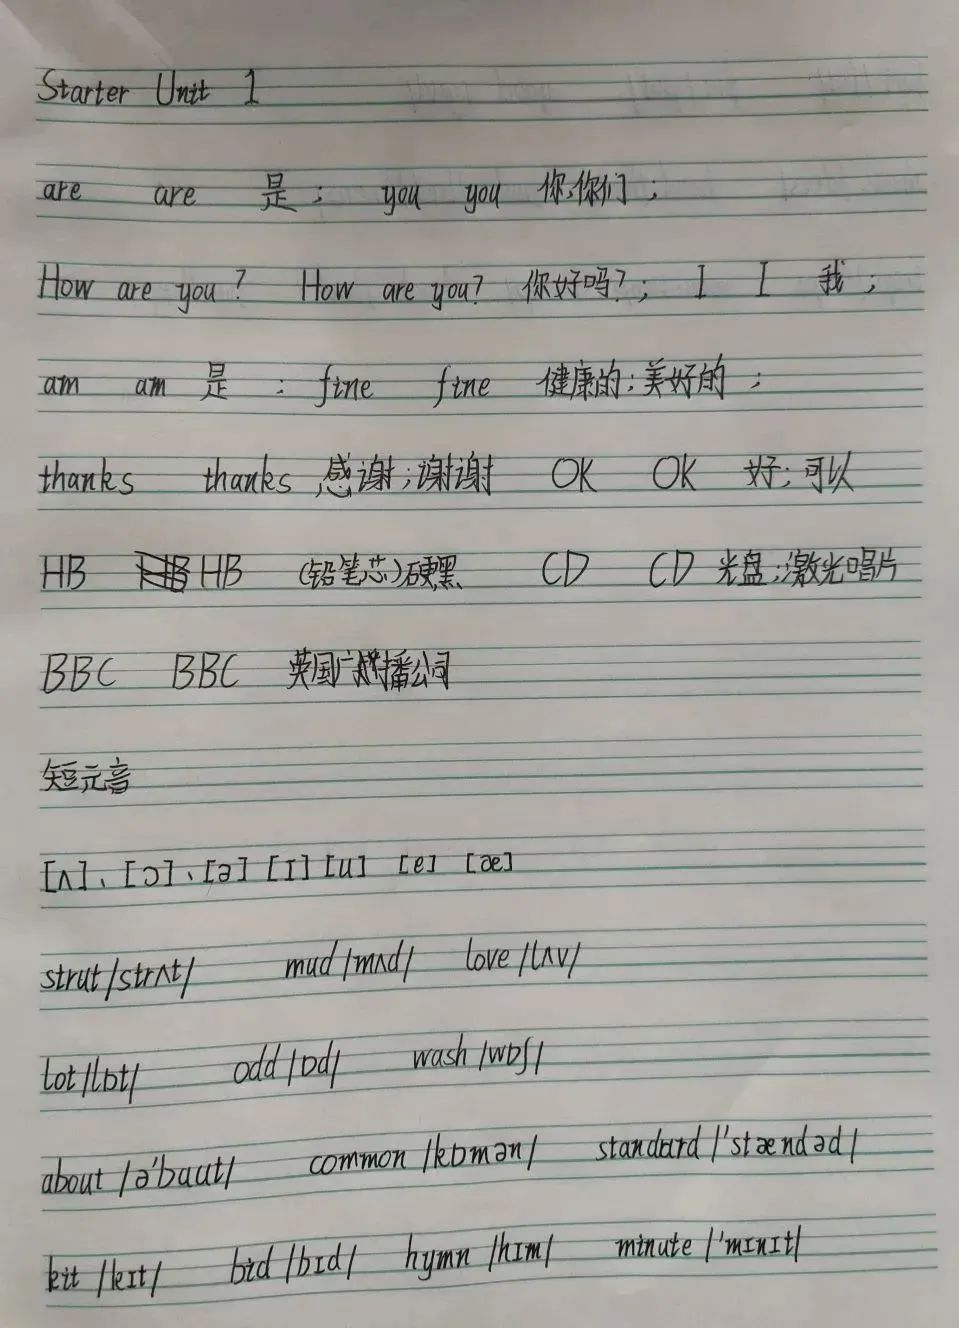 Starter Unit 1
are are 是； you you 你；你们；
How are you? How are you? 你好吗?； I I 我；
am am 是； fine fine 健康的；美好的；
thanks thanks 感谢；谢谢 OK OK 好；可以
HB HB HB (铅笔芯)硬黑 CD CD 光盘；激光唱片
BBC BBC 英国广播公司
短元音
[ʌ]、[ɔ]、[ə] [ɪ] [u] [e] [æ]
strut /strʌt/ mud /mʌd/ love /lʌv/
lot /lɒt/ odd /ɒd/ wash /wɒʃ/
about /ə'baut/ common /kɒmən/ standard /'stændəd/
kit /kɪt/ bid /bɪd/ hymn /hɪm/ minute /'mɪnɪt/